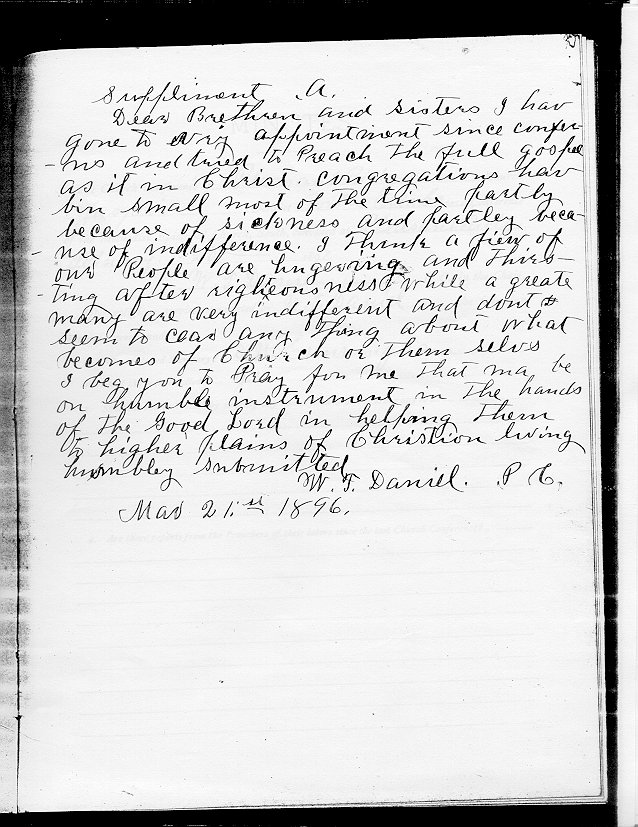 Suppliment A.
Dear Brethren and Sisters I hav
gone to evry appointment since confer-
-ns and tried to Preach the full gospel
as it in Christ. congregations hav
bin small most of the time partly
because of sickness and partley beca-
-use of indifference. I think a fiew of
our People are hugering and thirs-
-ting after righteousness while a greate
many are very indifferent and dont
seem to cear any thing about what
becomes of Church or them selvs
I beg you to Pray for me that ma be
on humble instrument in the hands
of the Good Lord in helping them
to higher plains of Christion living
humbley submitted
W. T. Daniel. P C.
Mar 21.st 1896.